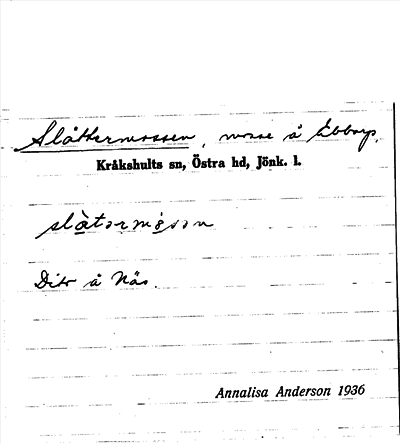 Slåttermossen, mosse å Ebbarp.
Kråkshults sn, Östra hd, Jönk. l.
Dito å Näs.
Annalisa Anderson 1936